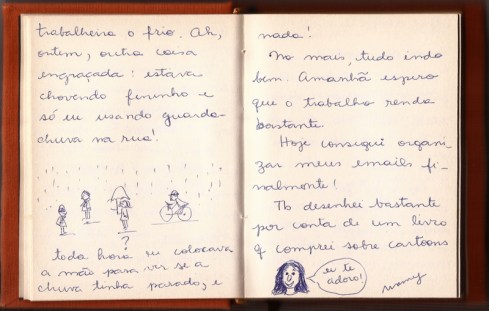 trabalheira o frio. Ah,
ontem, outra coisa
engraçada: estava
chovendo fininho e
só eu usando guarda-
chuva na rua!
?
toda hora eu colocava
a mão para ver se a
chuva tinha parado, e
nada!
No mais, tudo indo
bem. Amanhã espero
que o trabalho renda
bastante.
Hoje consegui organi-
zar meus emails fi-
nalmente!
Tb desenhei bastante
por conta de um livro
q comprei sobre cartoons
eu te
adoro!